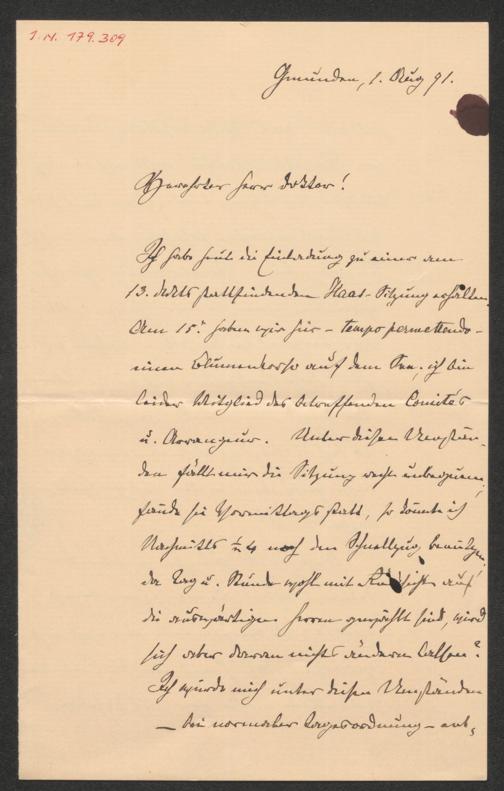 I. N. 179.309
Gmunden, 1. Aug 91.
Geehrter Herr Doktor!
Ich habe heut die Einladung zu einer am
13. stattfindenden Haas-Sitzung erhalten.
Am 15. haben wir hier – tempo permettendo –
einen Blumenkorso auf dem See. ich bin
leider Mitglied des betreffenden Comités
u. Arrangeur. Unter diesen Umstän-
den fällt mir die Sitzung recht unbequem;
fände sie Vormittags statt, so könnte ich
Nachmitts ½ 4 noch den Schnellzug benützen.
da Tag u. Stunde wohl mit Rücksicht auf
die auswärtigen Herren gewählt sind, wird
sich aber daran nichts ändern lassen?
Ich würde mich unter diesen Umständen
– bei normaler Tagesordnung – ent-